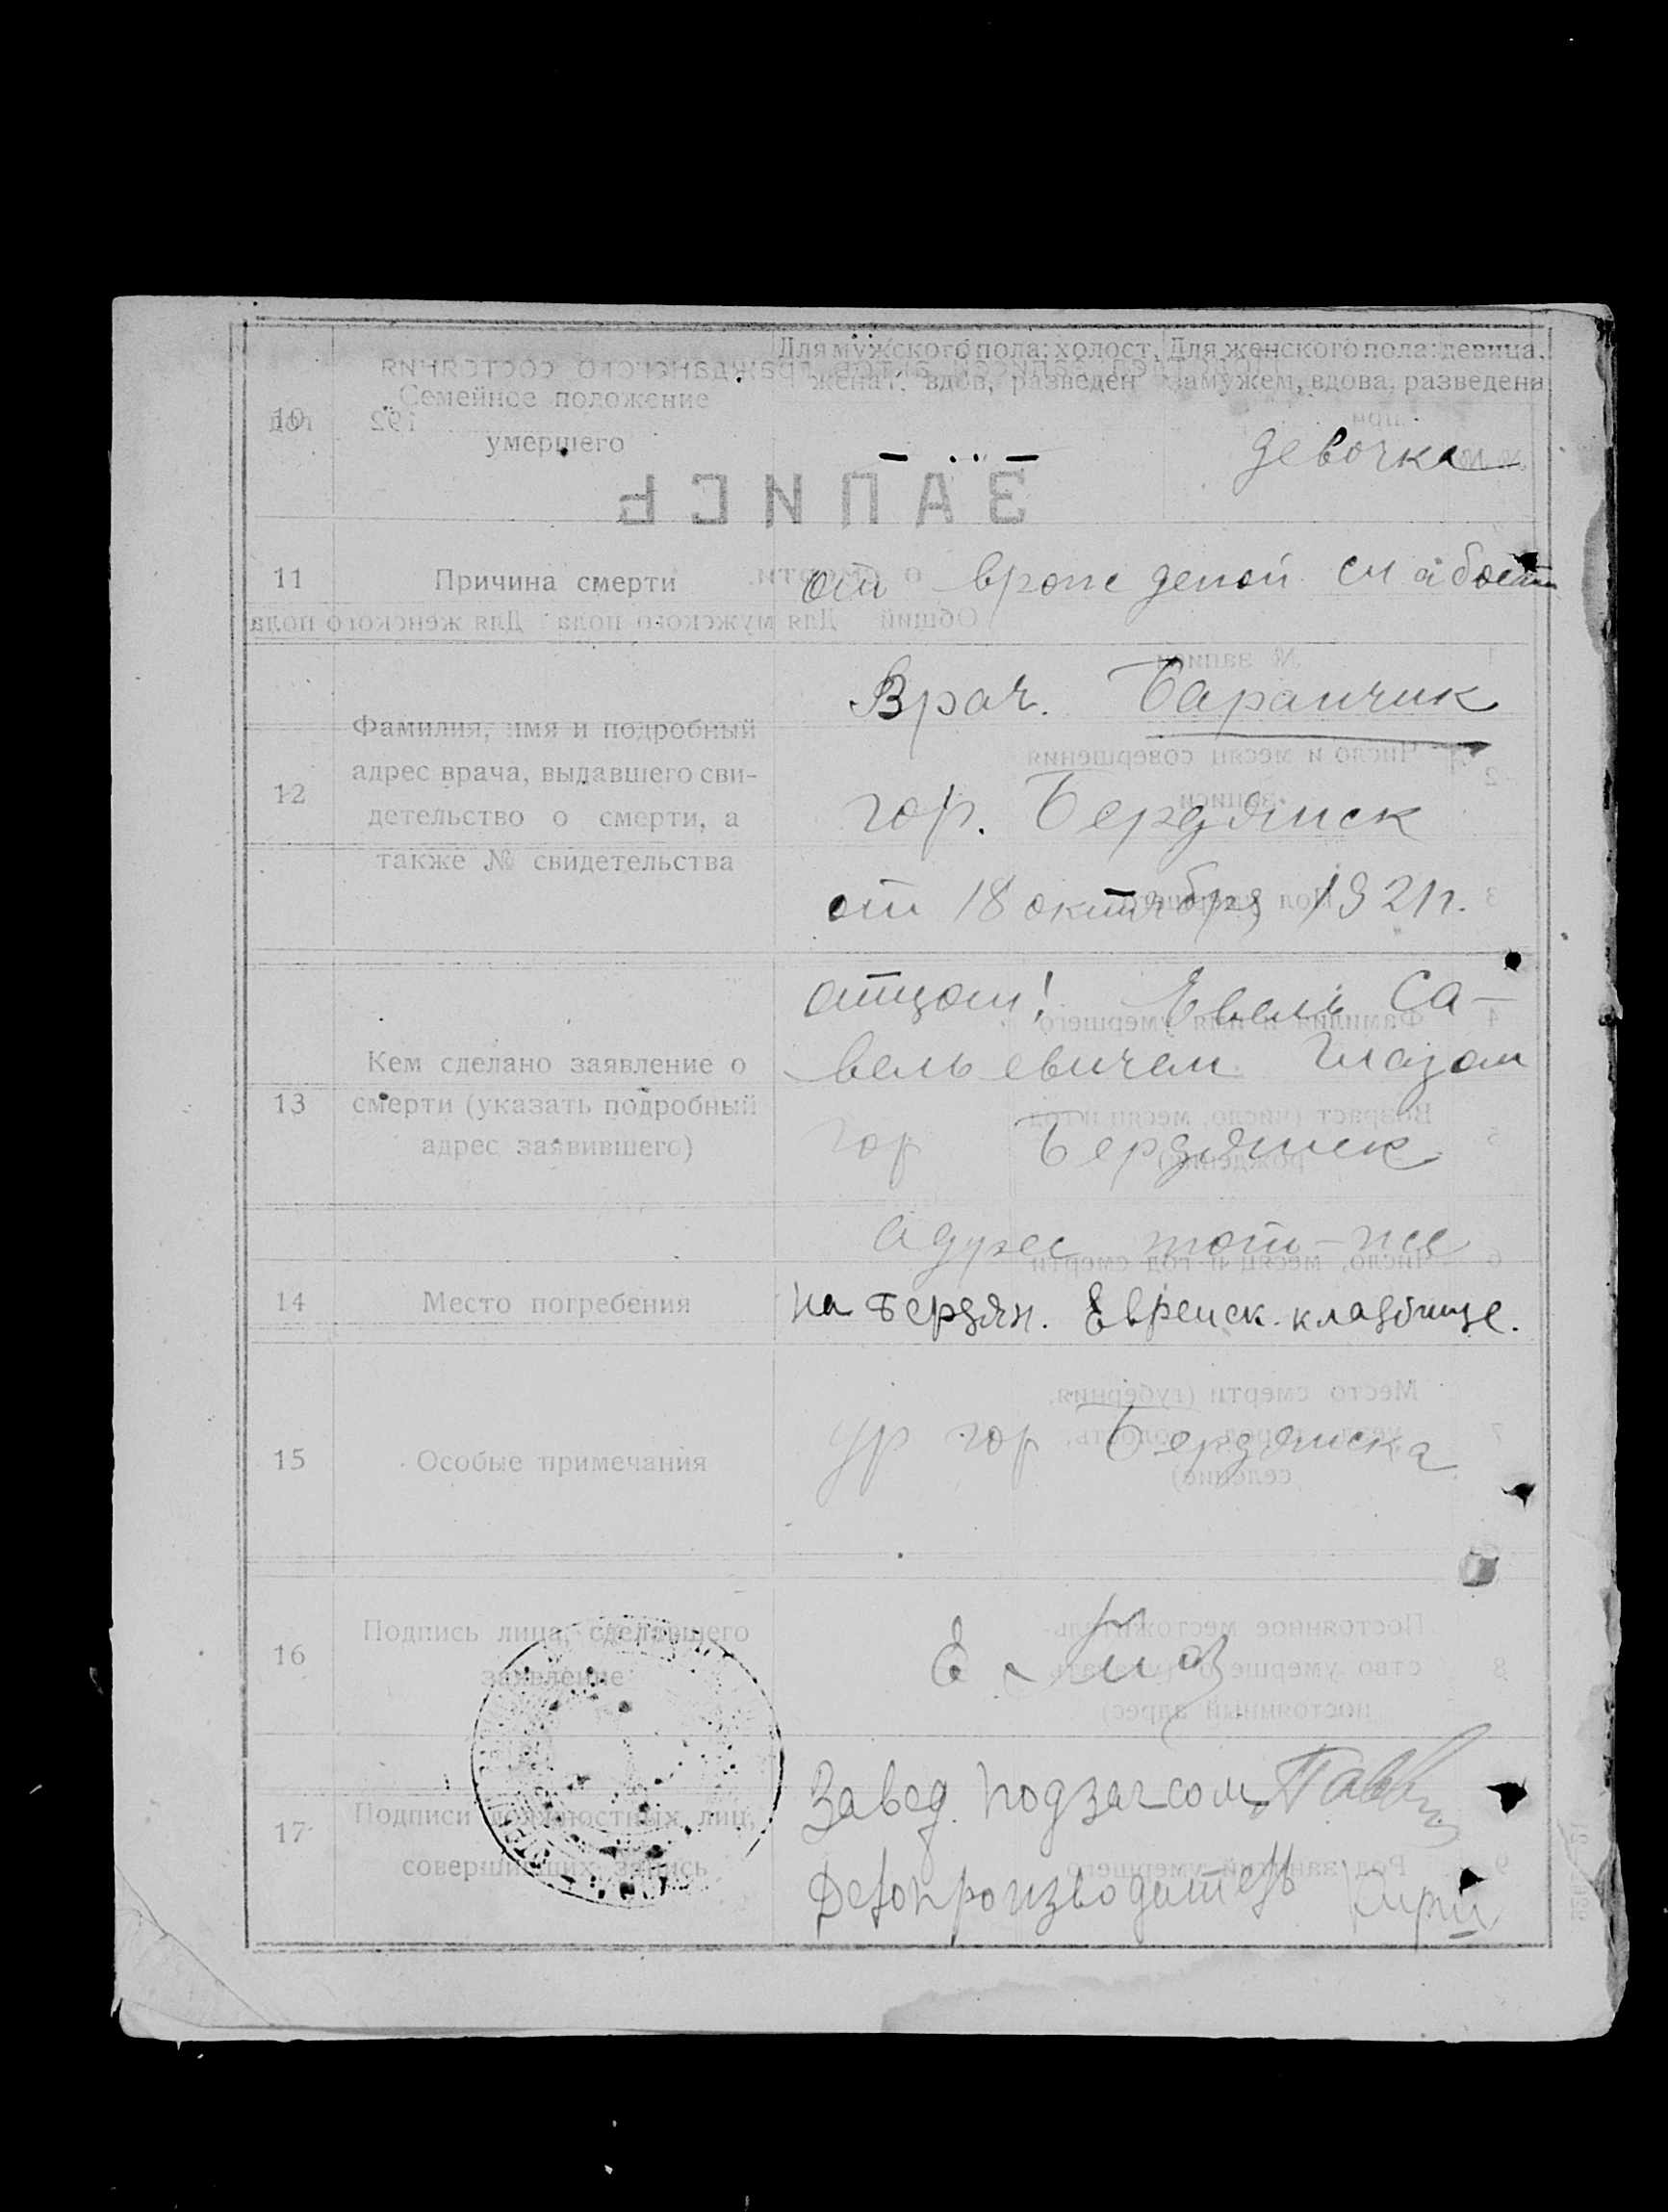 Для мужского пола: холост, женат, вдов, разведен
Для женского пола: девица, замужем, вдова, разведена
10
Семейное положение
умершего
девочка
11
Причина смерти
от врожденой слабости
12
Фамилия, имя и подробный
адрес врача, выдавшего сви-
детельство о смерти, а
также № свидетельства
Врач. Баранчик
гор. Бердянск
от 18 октября 1921г.
13
Кем сделано заявление о
смерти (указать подробный
адрес заявившего)
отцом! Евель Са-
вельевичем Глазом
гор Бердянск
адрес тот-же
14
Место погребения
на Бердян. Еврейск. кладбище.
15
Особые примечания
ур гор Бердянска
16
Подпись лица, сделавшего
заявление
Е. Глаз
17
Подписи должностных лиц,
совершивших запись
Завед. подзагсом
Делопроизводитель